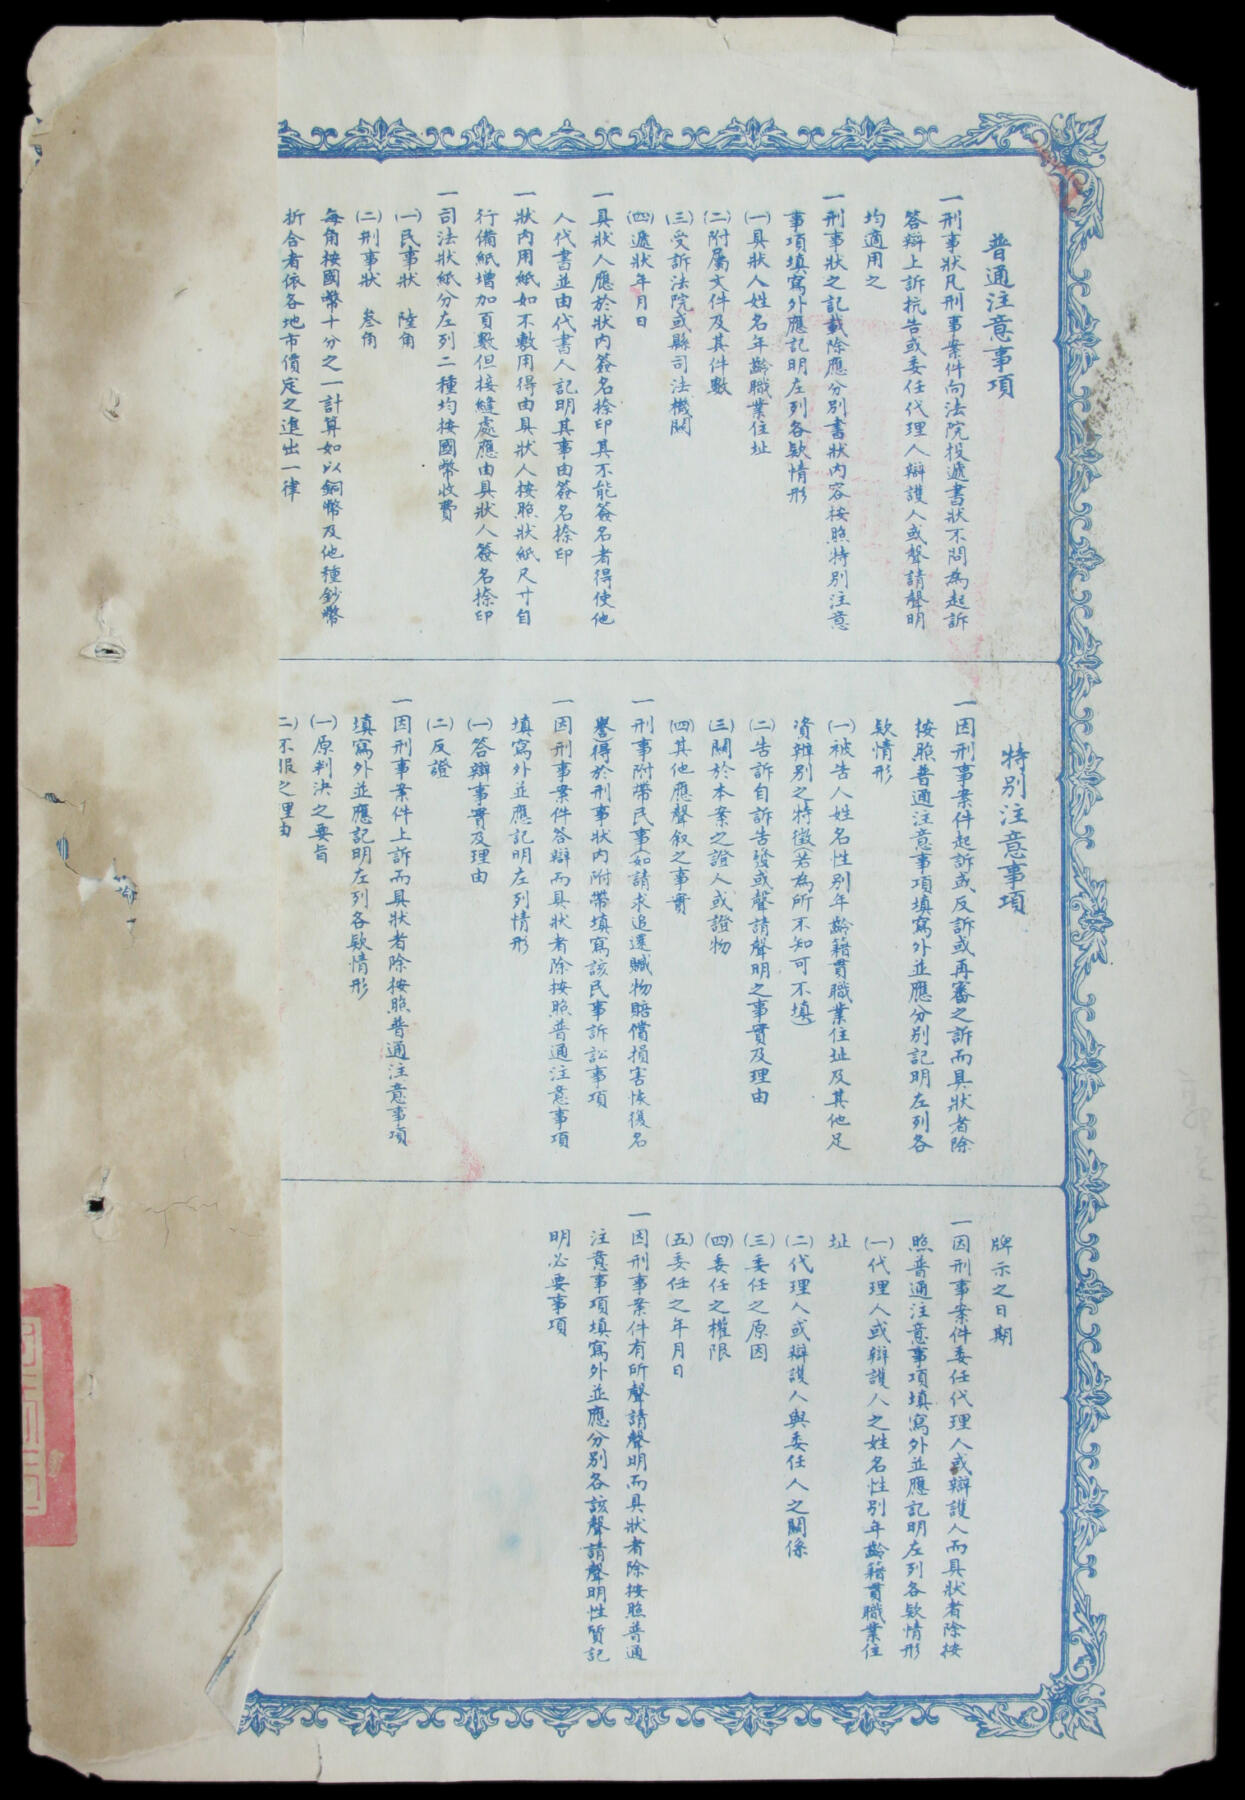 普通注意事項
一刑事狀凡刑事案件向法院投遞書狀不問為起訴
答辯上訴抗告或委任代理人辯護人或聲請聲明
均適用之
一刑事狀之記載除應分別書狀內容按照特別注意
事項填寫外應記明左列各欵情形
㈠具狀人姓名年齡職業住址
㈡附屬文件及其件數
㈢受訴法院或縣司法機關
㈣遞狀年月日
一具狀人應於狀內簽名捺印其不能簽名者得使他
人代書並由代書人記明其事由簽名捺印
一狀內用紙如不敷用得由具狀人按照狀紙尺寸自
行備紙增加頁數但接縫處應由具狀人簽名捺印
一司法狀紙分左列二種均按國幣收費
㈠民事狀 陸角
㈡刑事狀 叁角
每角按國幣十分之一計算如以銅幣及他種鈔幣
折合者依各地市價定之進出一律
特別注意事項
一因刑事案件起訴或反訴或再審之訴而具狀者除
按照普通注意事項填寫外並應分別記明左列各
欵情形
㈠被告人姓名性別年齡籍貫職業住址及其他足
資辨別之特徵(若為所不知可不填)
㈡告訴自訴告發或聲請聲明之事實及理由
㈢關於本案之證人或證物
㈣其他應聲叙之事實
一刑事附帶民事(如請求追還贓物賠償損害恢復名
譽)得於刑事狀內附帶填寫該民事訴訟事項
一因刑事案件答辯而具狀者除按照普通注意事項
填寫外並應記明左列情形
㈠答辯事實及理由
㈡反證
一因刑事案件上訴而具狀者除按照普通注意事項
填寫外並應記明左列各欵情形
㈠原判決之要旨
㈡不服之理由
牌示之日期
一因刑事案件委任代理人或辯護人而具狀者除按
照普通注意事項填寫外並應記明左列各欵情形
㈠代理人或辯護人之姓名性別年齡籍貫職業住
址
㈡代理人或辯護人與委任人之關係
㈢委任之原因
㈣委任之權限
㈤委任之年月日
一因刑事案件有所聲請聲明而具狀者除按照普通
注意事項填寫外並應分別各該聲請聲明性質記
明必要事項